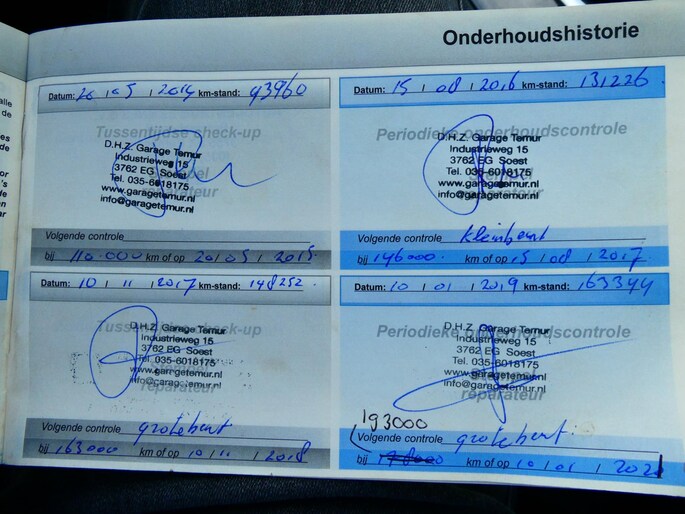 Onderhoudshistorie
alle
de
es
or
's
fde
en
ar
Datum: 20 / 05 / 2014 km-stand: 93960
Tussentijdse check-up
D.H.Z. Garage Temur
Industrieweg 15
3762 EG Soest
Tel. 035-6018175
www.garagetemur.nl
info@garagetemur.nl
Volgende controle
bij 110.000 km of op 20 / 05 / 2015
Datum: 15 / 08 / 2016 km-stand: 131226
Periodieke onderhoudscontrole
D.H.Z. Garage Temur
Industrieweg 15
3762 EG Soest
Tel. 035-6018175
www.garagetemur.nl
info@garagetemur.nl
Volgende controle kleinbeurt
bij 146000 km of op 15 / 08 / 2017
Datum: 10 / 11 / 2017 km-stand: 148252
Tussentijdse check-up
D.H.Z. Garage Temur
Industrieweg 15
3762 EG Soest
Tel. 035-6018175
www.garagetemur.nl
info@garagetemur.nl
reparateur
Volgende controle grotebeurt
bij 163000 km of op 10 / 11 / 2018
Datum: 10 / 01 / 2019 km-stand: 163344
Periodieke onderhoudscontrole
D.H.Z. Garage Temur
Industrieweg 15
3762 EG Soest
Tel. 035-6018175
www.garagetemur.nl
info@garagetemur.nl
reparateur
193000
Volgende controle grotebeurt
bij km of op 10 / 01 / 2021